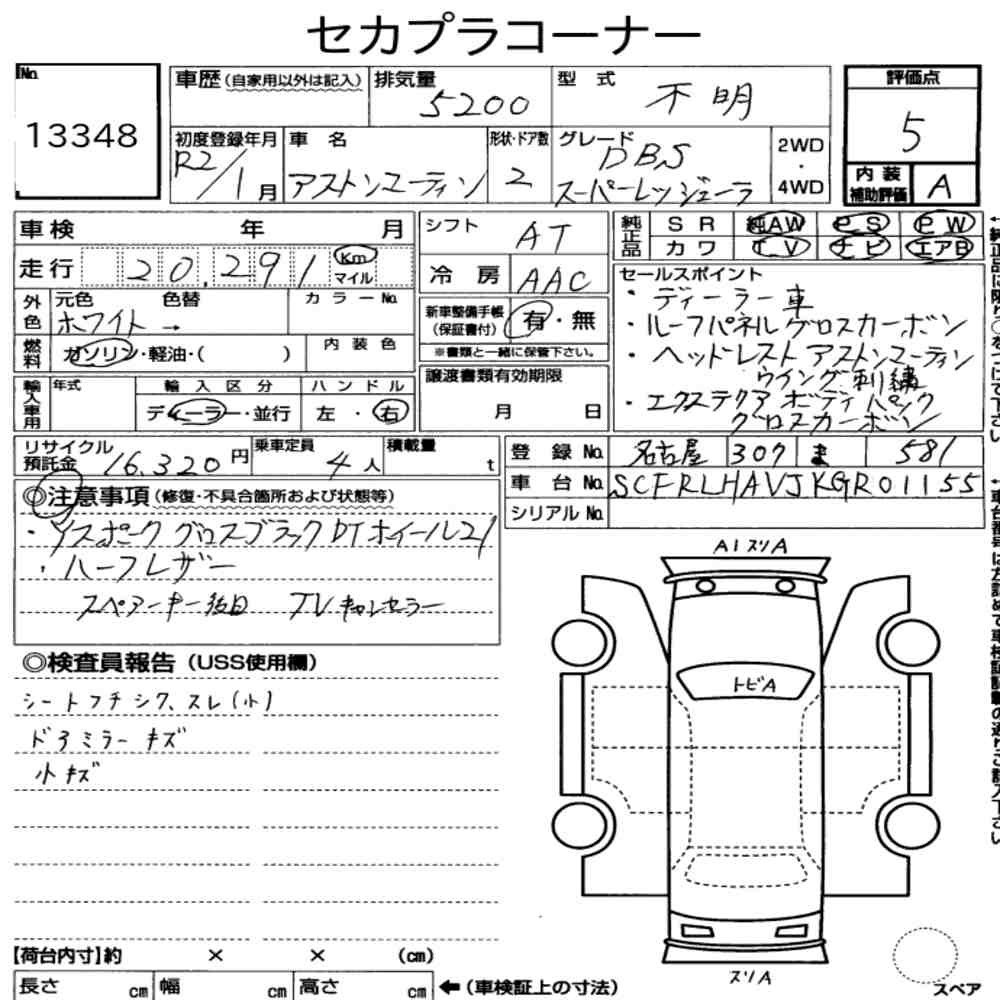 セカプラコーナー
No.
13348
車歴(自家用以外は記入)
排気量
5200
型式
不明
評価点
5
初度登録年月
R2/1月
車名
アストンマーティン
形状・ドア数
2
グレード
DBS
スーパーレッジェーラ
2WD
・
4WD
内装
補助評価
A
車検 年 月
シフト
AT
純正品
SR 純AW PS PW
カワ TV ナビ エアB
走行
20,291
Km
マイル
冷房
AAC
セールスポイント
・ディーラー車
・ルーフパネルグロスカーボン
・ヘッドレスト アストンマーティン
ウイング刺繍
・エクステリア ボディパック
グロスカーボン
外色
元色 色替
ホワイト→
カラーNo.
新車整備手帳
(保証書付)
有・無
※書類と一緒に保管下さい。
燃料
ガソリン・軽油・( )
内装色
譲渡書類有効期限
月 日
輸入車用
年式
輸入区分
ディーラー・並行
ハンドル
左・右
リサイクル
預託金
16,320円
乗車定員
4人
積載量
t
登録No.
名古屋 307 ま 581
車台No.
SCFRLHAVJKGR01155
シリアルNo.
◎注意事項(修復・不具合箇所および状態等)
・Yスポーク グロスブラックDTホイール21
・ハーフレザー
スペアーキー後日 TVキャンセラー
◎検査員報告(USS使用欄)
シートフチシワ、スレ(小)
ドアミラーキズ
小キズ
A1スリA
トビA
スリA
スペア
【荷台内寸】約 × × (cm)
長さ cm 幅 cm 高さ cm
←(車検証上の寸法)